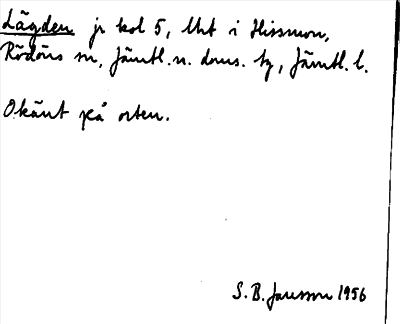 Lägden jr kol 5, Uht i Hissmon,
Rödöns sn, Jämtl.n. doms. tg, Jämtl. l.
Okänt på orten.
S. B. Jansson 1956